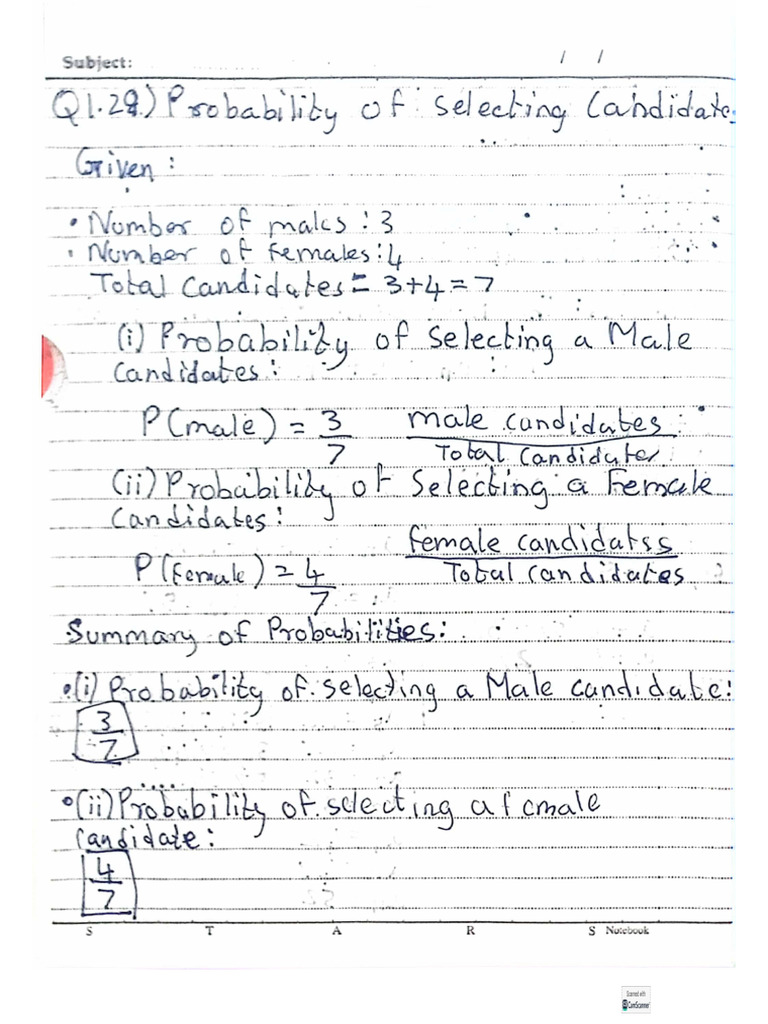 Subject: / /
Q1.28.) Probability of selecting Candidate.
Given :
• Number of males : 3
• Number of females : 4
Total Candidates = 3+4 = 7
(i) Probability of selecting a Male
Candidates :
P(male) = 3/7 male candidates / Total Candidates
(ii) Probability of Selecting a Female
Candidates :
P(Female) = 4/7 female candidatss / Total Candidates
Summary of Probabilities :
• (i) Probability of selecting a Male candidate :
3/7
• (ii) Probability of selecting a female
Candidate :
4/7
S T A R S Notebook
Scanned with
CamScanner